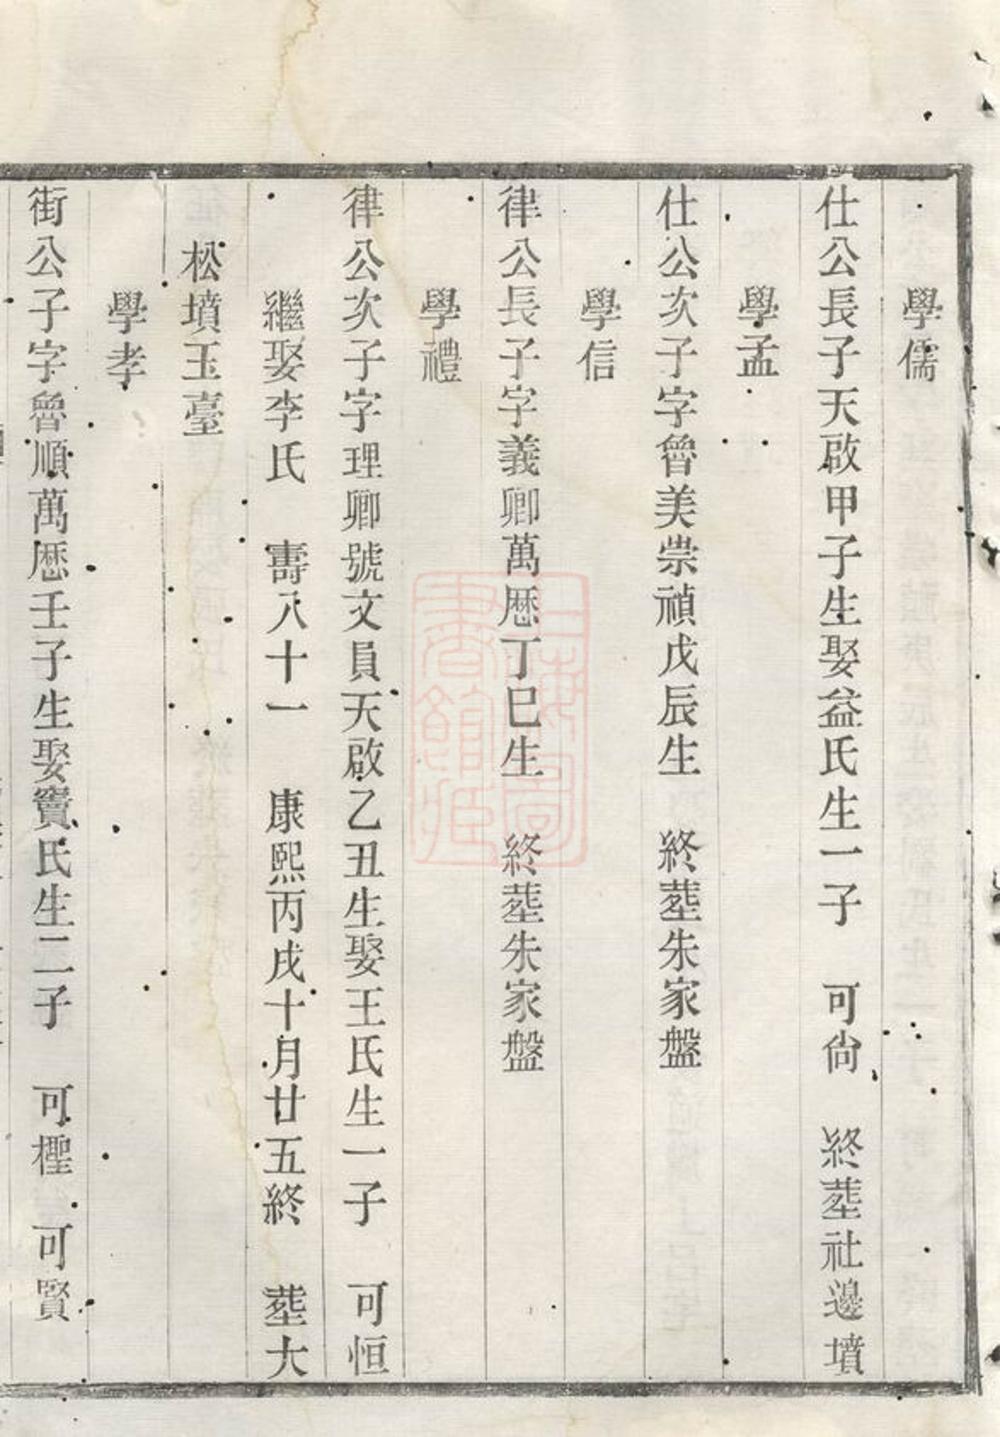 學儒
仕公長子天啟甲子生娶益氏生一子　可尙　終塟社邊墳
學孟
仕公次子字魯美崇禎戊辰生　終塟朱家盤
學信
律公長子字義卿萬厯丁巳生　終塟朱家盤
學禮
律公次子字理卿號文員天啟乙丑生娶王氏生一子　可恒
繼娶李氏　壽八十一　康熙丙戌十月廿五終　塟大
松墳玉臺
學孝
街公子字魯順萬厯壬子生娶竇氏生二子　可檉　可賢
上海圖書館藏